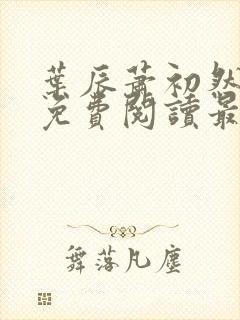 葉辰蕭初然
免費閱讀最
舞落凡塵